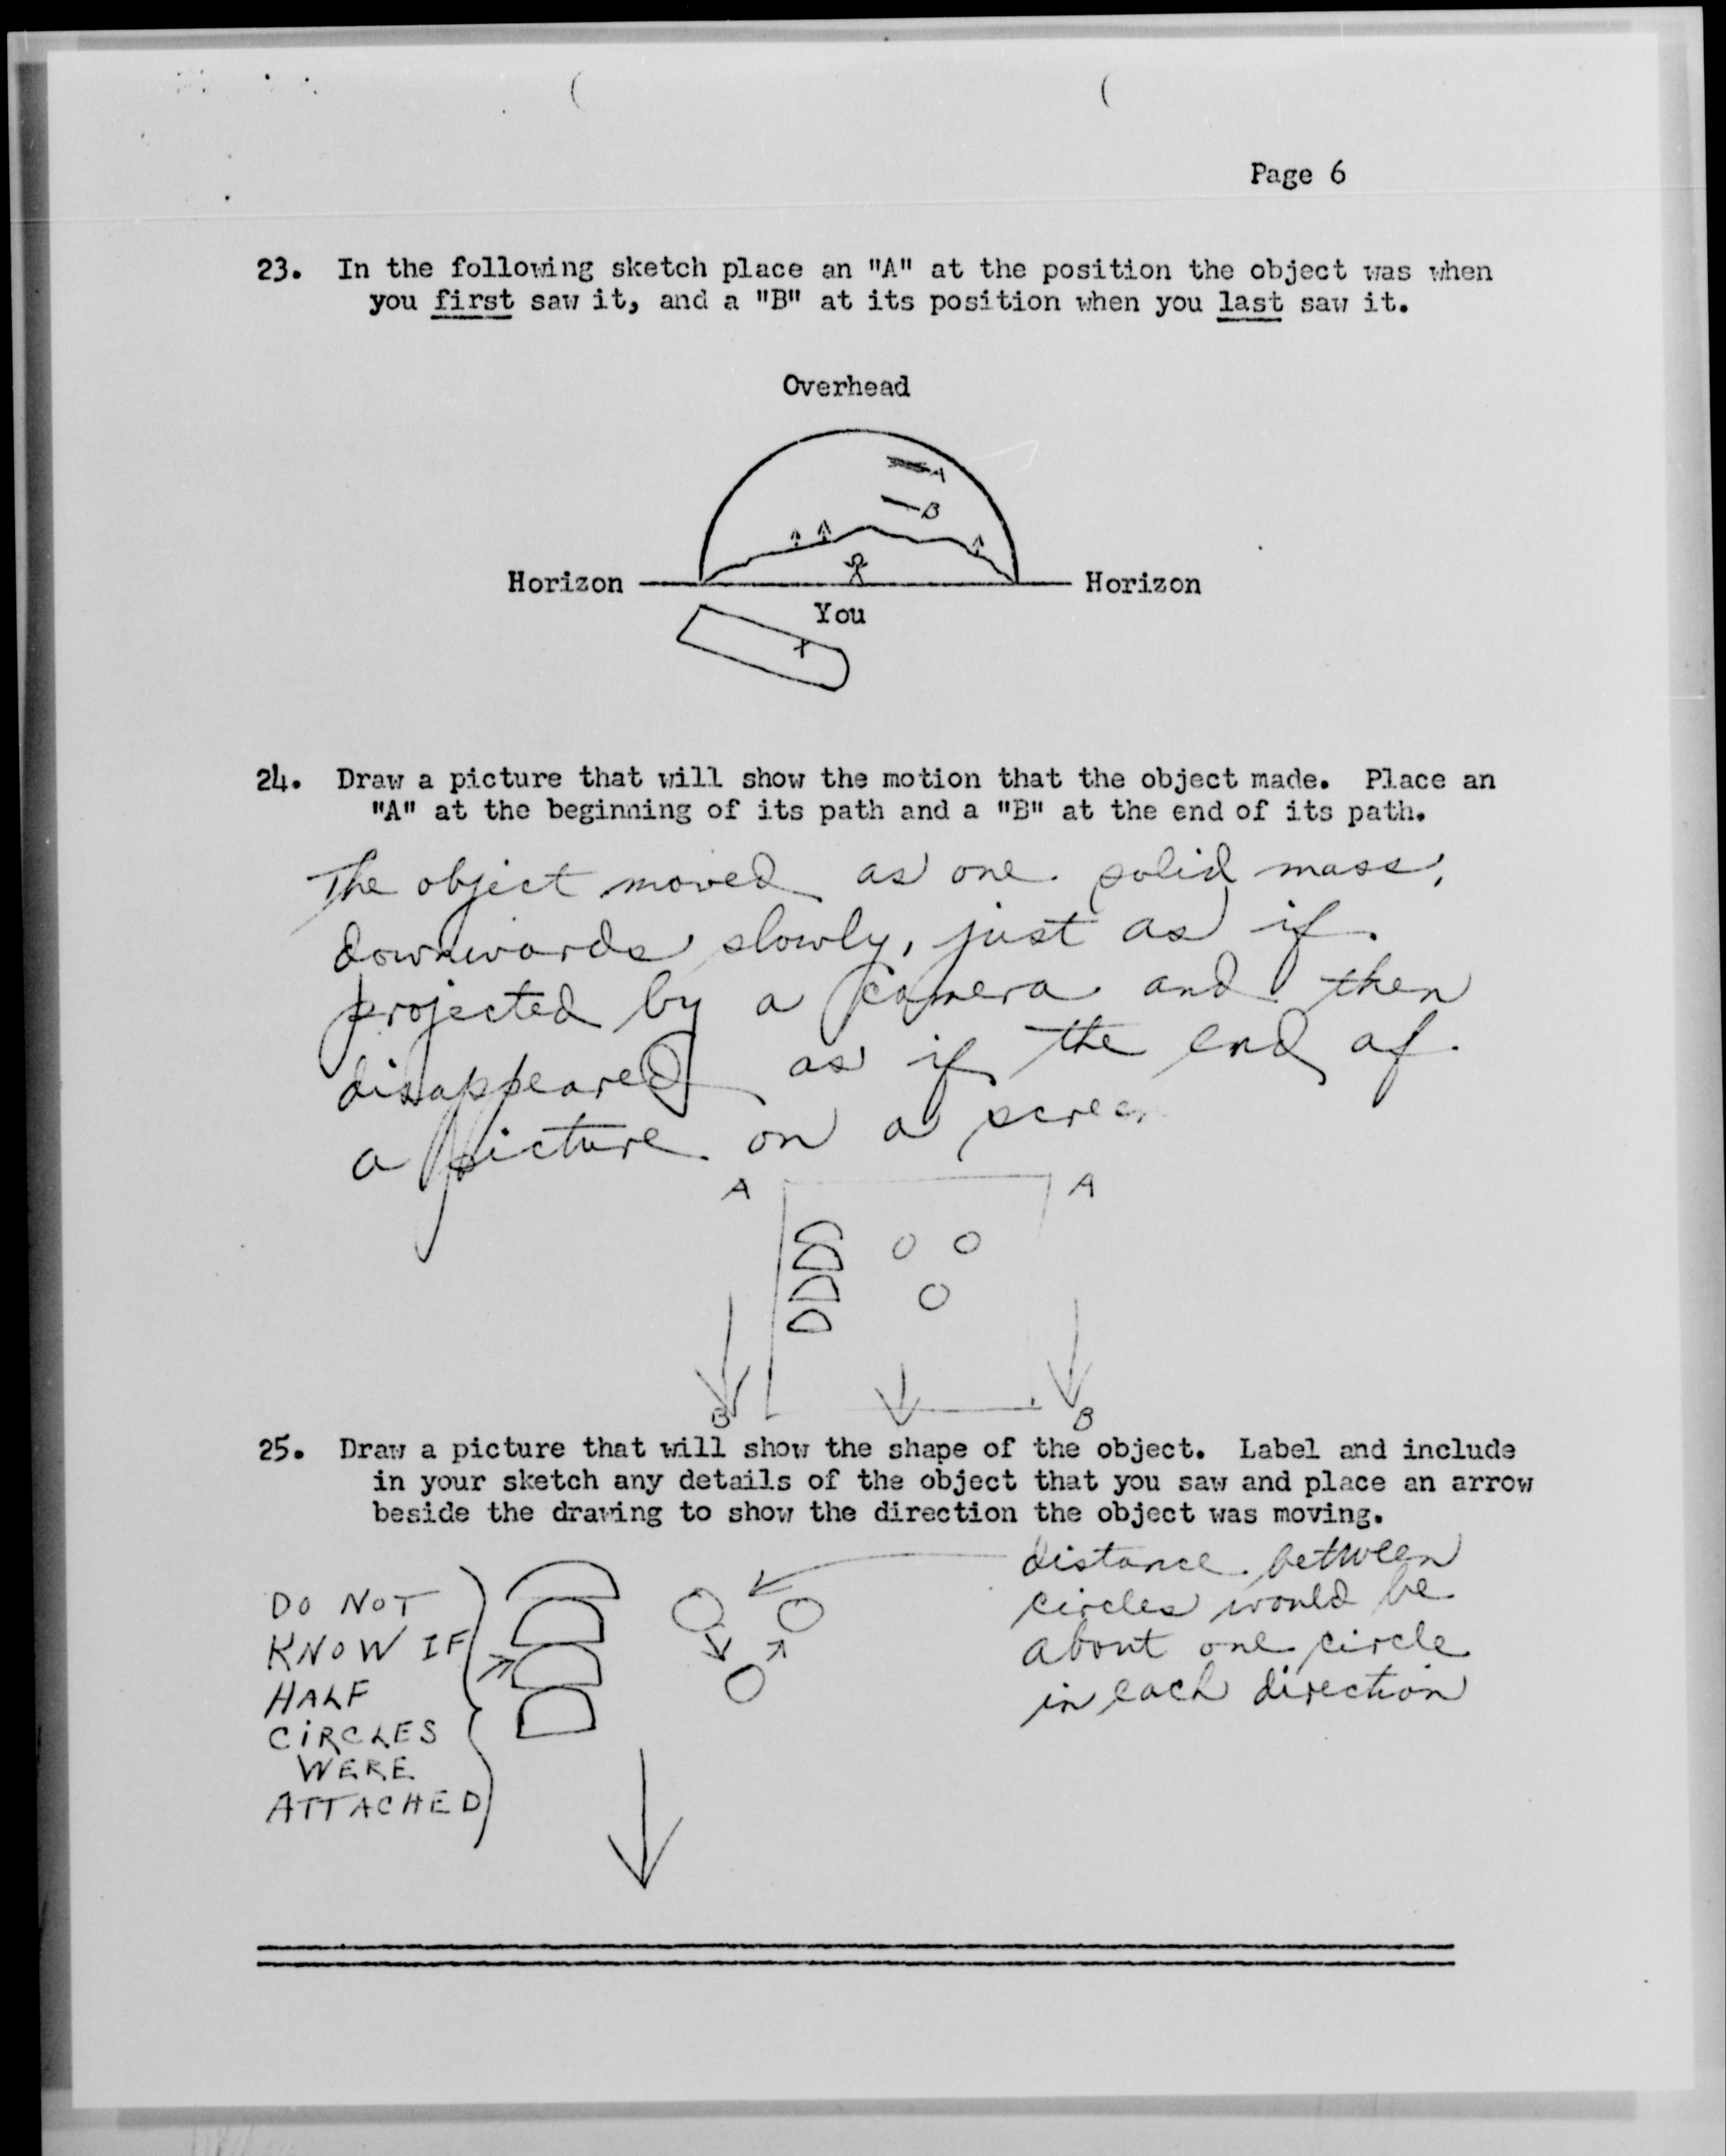 Page 6
23. In the following sketch place an "A" at the position the object was when
you first saw it, and a "B" at its position when you last saw it.
Overhead
A
B
Horizon
Horizon
You
x
24. Draw a picture that will show the motion that the object made. Place an
"A" at the beginning of its path and a "B" at the end of its path.
The object moved as one solid mass,
downwards slowly, just as if
projected by a camera and then
disappeared as if the end of
a picture on a screen
A
A
B
B
25. Draw a picture that will show the shape of the object. Label and include
in your sketch any details of the object that you saw and place an arrow
beside the drawing to show the direction the object was moving.
DO NOT
KNOW IF
HALF
CiRCLES
WERE
ATTACHED
distance between
circles would be
about one circle
in each direction